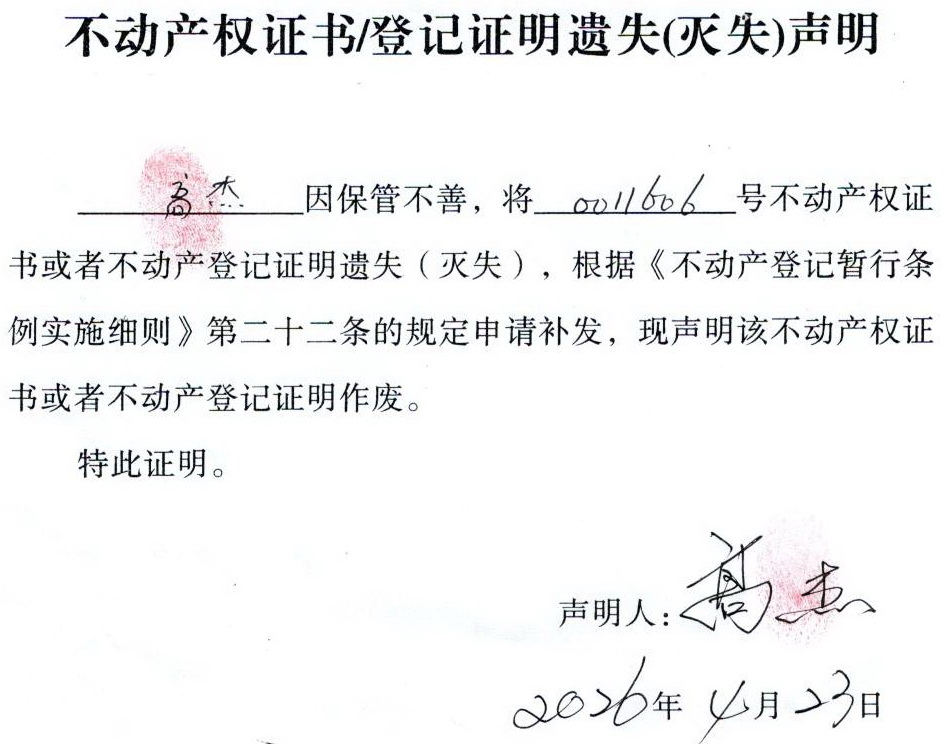 不动产权证书/登记证明遗失(灭失)声明
高杰因保管不善，将0011606号不动产权证
书或者不动产登记证明遗失（灭失），根据《不动产登记暂行条
例实施细则》第二十二条的规定申请补发，现声明该不动产权证
书或者不动产登记证明作废。
特此证明。
声明人：高杰
2026年4月23日